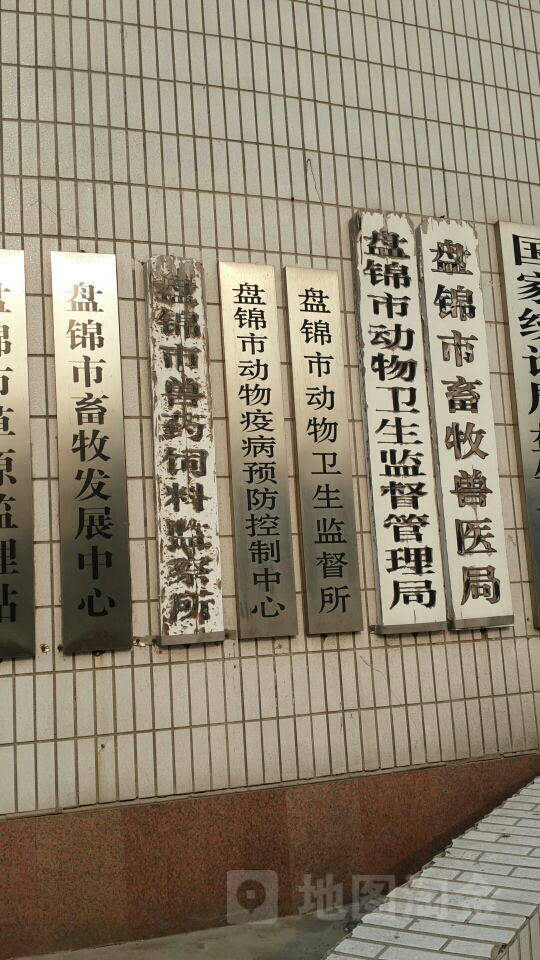 盘锦市草原监理站
盘锦市畜牧发展中心
盘锦市兽药饲料监察所
盘锦市动物疫病预防控制中心
盘锦市动物卫生监督所
盘锦市动物卫生监督管理局
盘锦市畜牧兽医局
国家统计局盘
地图淘金